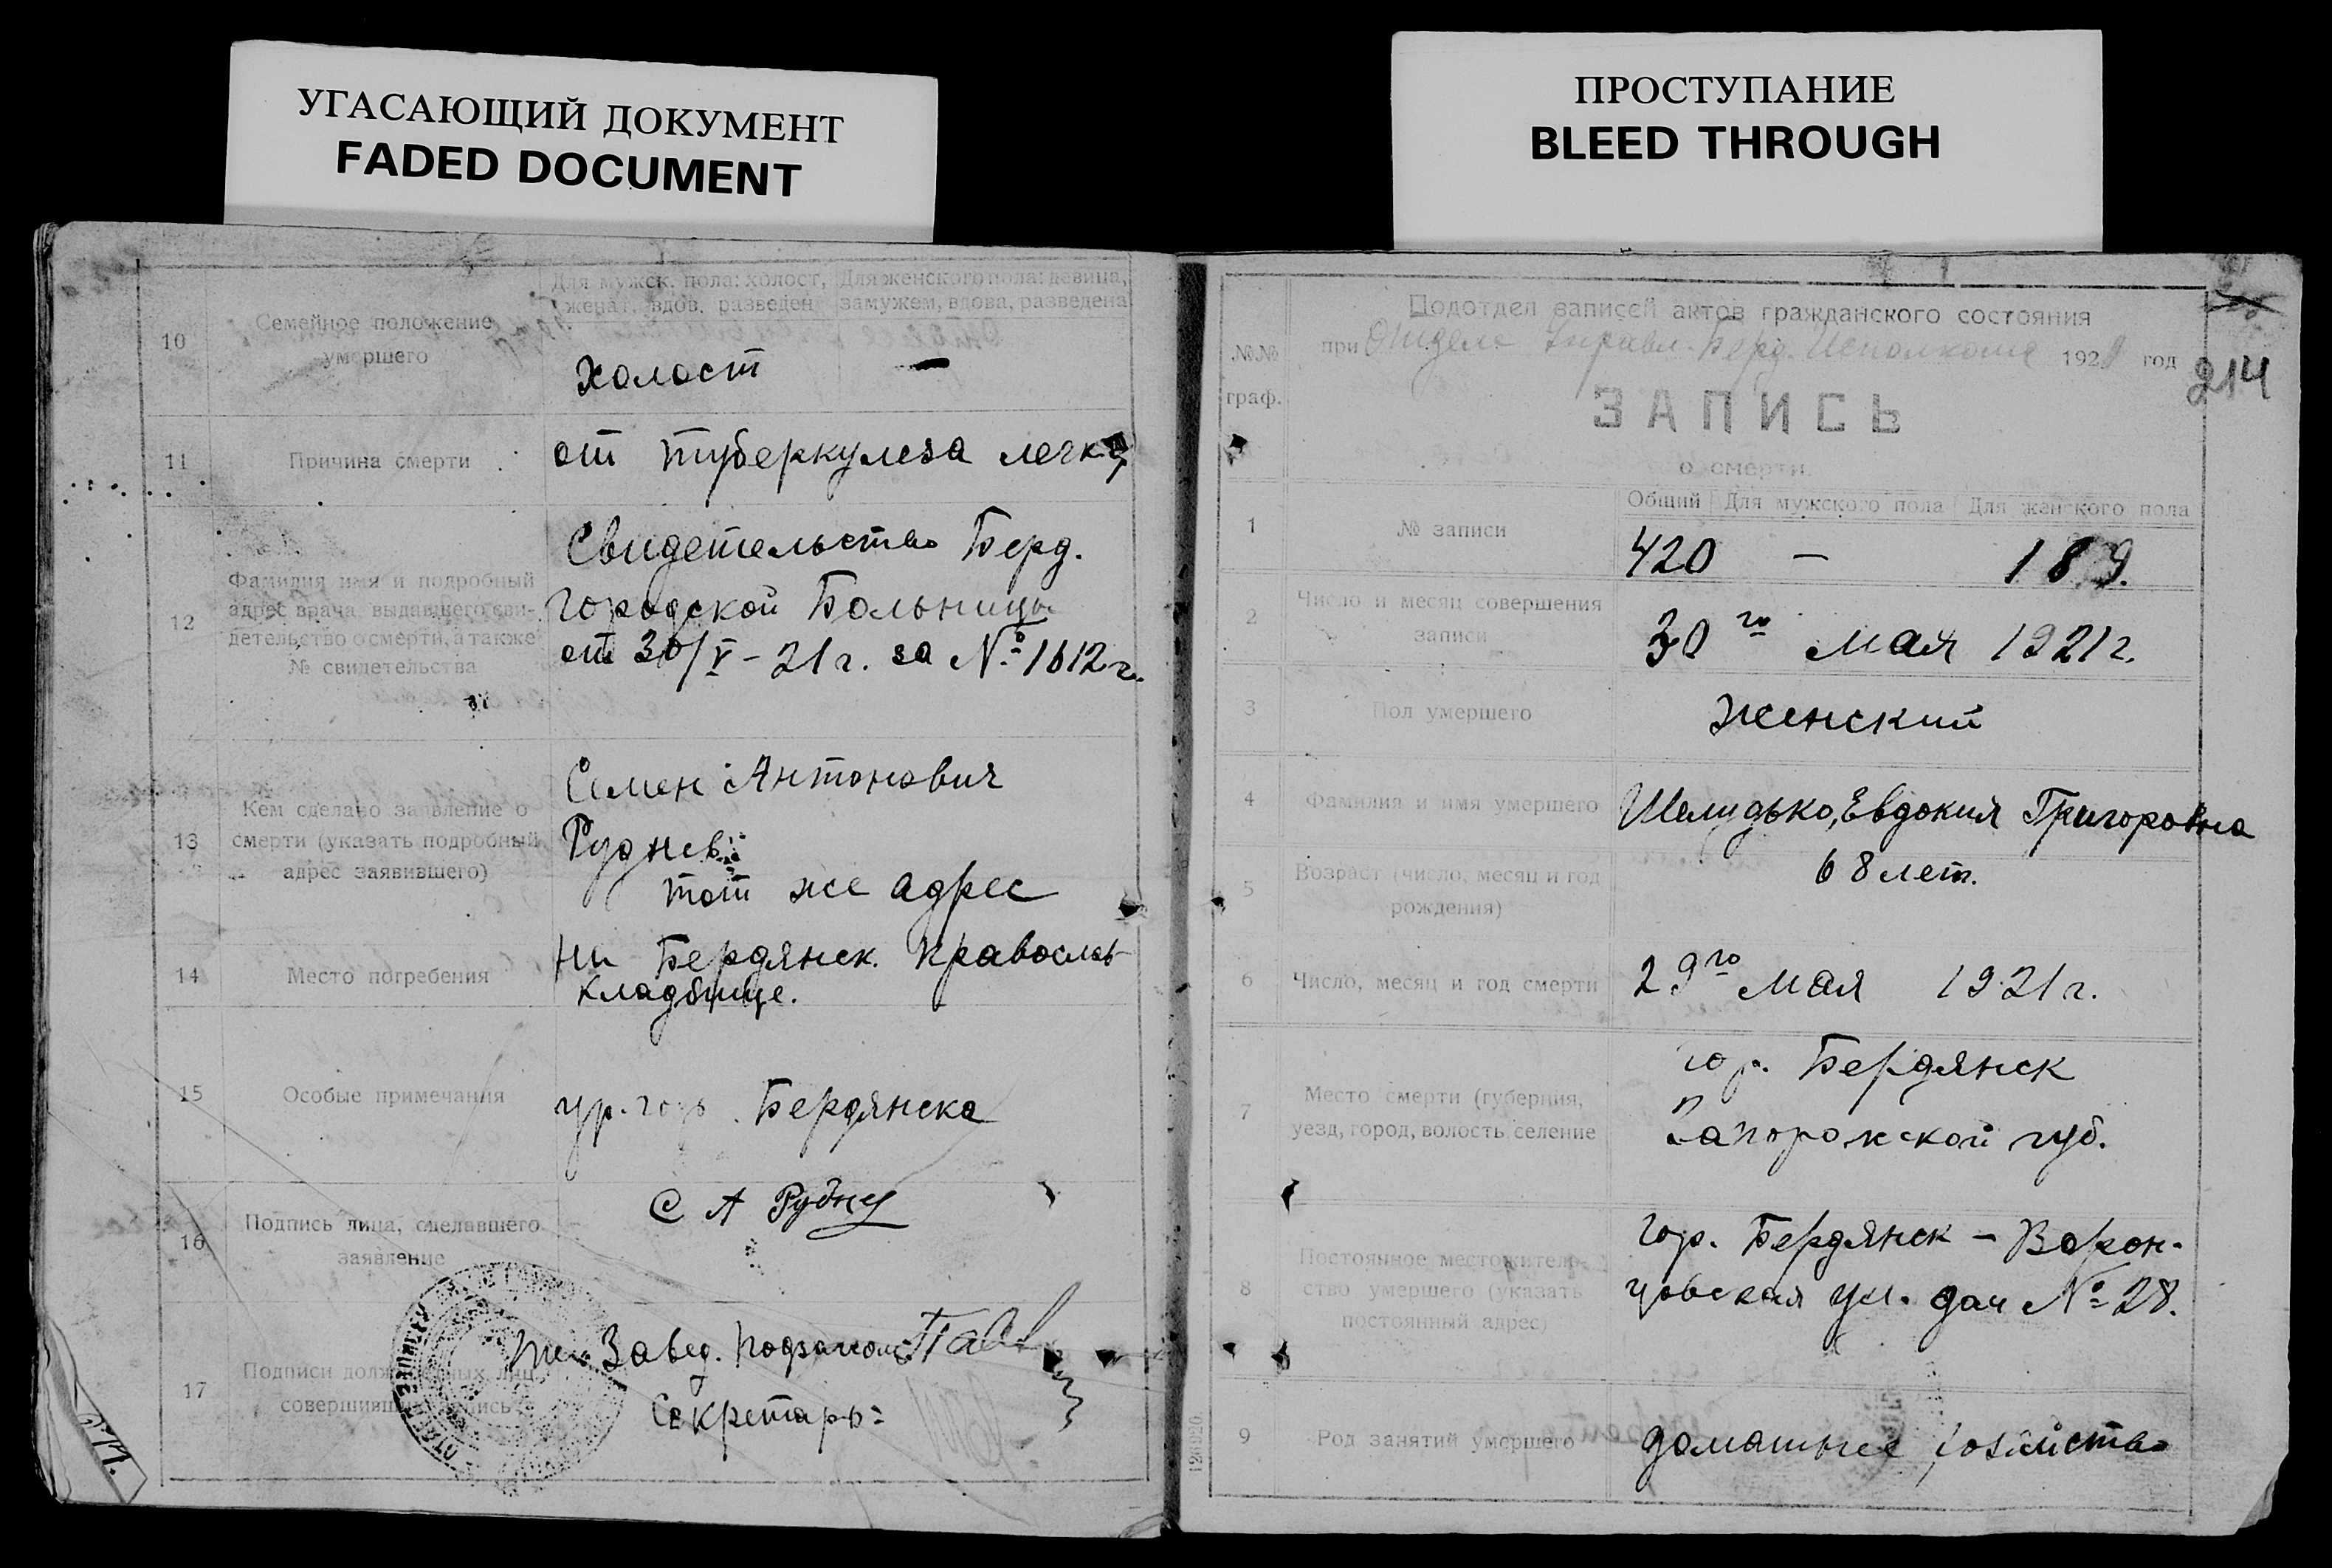 УГАСАЮЩИЙ ДОКУМЕНТ
FADED DOCUMENT
ПРОСТУПАНИЕ
BLEED THROUGH
10
Семейное положение
умершего
Для мужск. пола: холост,
женат, вдов, разведен
Для женского пола: девица,
замужем, вдова, разведена
Холост —
11
Причина смерти
от туберкулеза легких
12
Фамилия имя и подробный
адрес врача, выдавшего сви-
детельство о смерти, а также
№ свидетельства
Свидетельство Берд.
городской Больницы
от 30/V - 21 г. за № 1612 г.
13
Кем сделано заявление о
смерти (указать подробный
адрес заявившего)
Семен Антонович
Руднев
тот же адрес
14
Место погребения
На Бердянск. Православ
кладбище.
15
Особые примечания
ур. гор. Бердянска
16
Подпись лица, сделавшего
заявление
С А Рудне
17
Подписи должностных лиц,
совершивших запись
Завед. Подзагсом
Секретарь:
Подотдел записей актов гражданского состояния
при Отделе Управл. Берд. Исполкома 1921 год
214
№№
граф.
ЗАПИСЬ
о смерти.
1
№ записи
Общий Для мужского пола Для женского пола
420 — 189.
2
Число и месяц совершения
записи
30 го мая 1921 г.
3
Пол умершего
Женский
4
Фамилия и имя умершего
Шелудько, Евдокия Григоровна
5
Возраст (число, месяц и год
рождения)
68 лет.
6
Число, месяц и год смерти
29 го мая 1921 г.
7
Место смерти (губерния,
уезд, город, волость селение
гор. Бердянск
Запорожской губ.
8
Постоянное местожитель-
ство умершего (указать
постоянный адрес)
гор. Бердянск - Ворон-
цовская ул. дом № 28.
9
Род занятий умершего
домашнее хозяйство